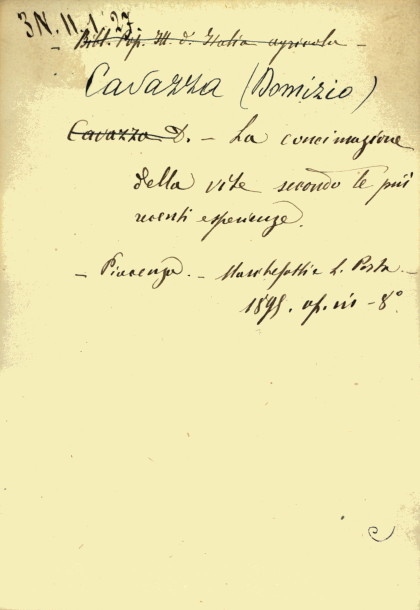 3N.11.1.27
- Bibl. Pop. Ill. d. Italia agricola -
Cavazza (Domizio)
Cavazza D. - La concimazione
della vite secondo le più
recenti esperienze.
- Piacenza. - Marchesotti e L. Porta -
1895. op. in - 8°